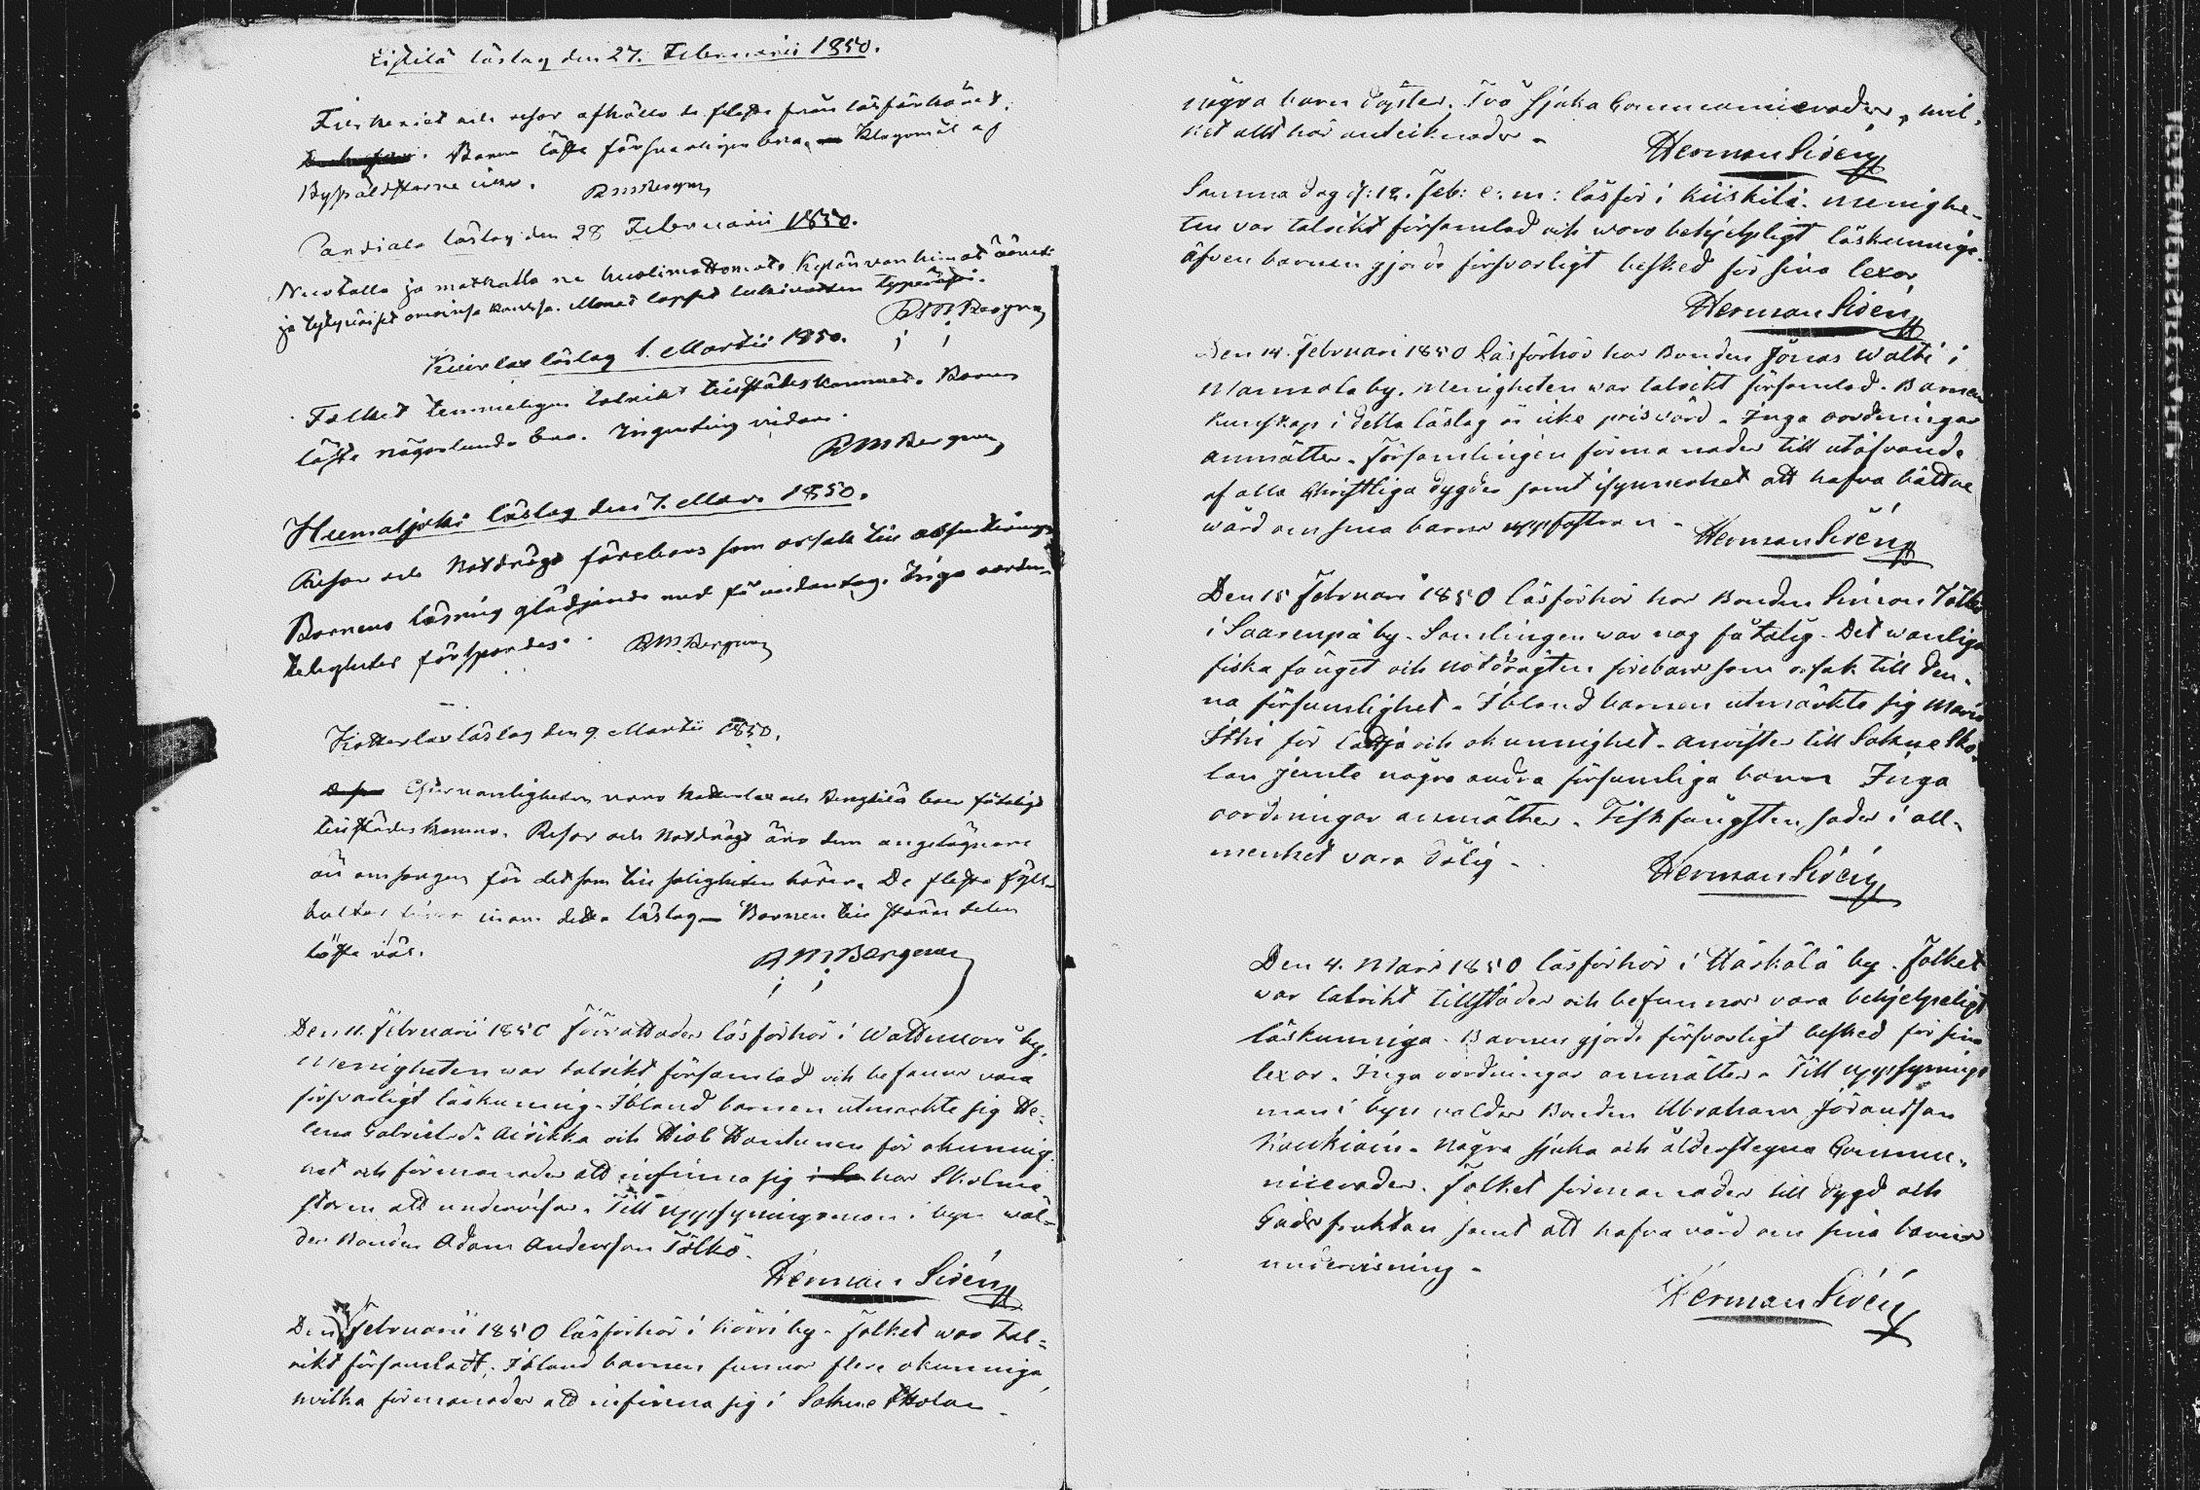 läslag den 27. Februarii 1850.
Fiskeriet och resor afhållo de fleste från läsförhöret.
Barnen läste försvarligen bra. Klagomål af
Byssåldstarne inga. RMBergman
Pandiala läslag den 28 Februarii 1850.
Nuotalla ja matkalla ne huolimattomat. Kylän van himat äänet
ja tytyväiset omainsa kanssa. Monet lapset lukivatten typeräsi.
RMBergman
Kiurlax läslag 1. Martii 1850.
Folket temmeligen talrikt tillstädeskommet. Barnen
läste någorlunda bra. Ingenting vidare.
RMBergman
Hurnaljoki läslag den 7. Mars 1850.
Resor och Notdrägt förebars som orsak till absenteringen
Barnens läsning glädjande med få undantag. Inga oordent-
ligheter förspordes. RMBergman
Kotterlax läslag den 9. Martii 1850.
Efter vanligheten voro Kotterlax och boer fåtaligt
tillstädeskomne. Resor och Notdrägt äro dem angelägnare
än omsorgen för det som till saligheten hörer. De fleste fyll-
bultar inom detta läslag. Barnen till större delen
läste väl.
RMBergman
Den 11. Februarii 1850 förrättades läsförhör i by.
Menigheten war talrikt församlad och befanns vara
försvarligt läskunnig. Ibland barnen utmärkte sig He-
lena Gabrielsd:r Airikka och Hiob Hantunen för okunnig-
het och förmanades att infinna sig hos Skolmä-
staren att undervisas. Till uppsyningsman i byn wal-
des Bonden Adam Andersson Tölkö.
Herman Sirén
Den Februarii 1850 läsförhör i Körri by. Folket war tal-
rikt församladt. Ibland barnen funnos flere okunniga,
hvilka förmanades att infinna sig i Sokne Skolan.
några barn döptes. Två sjuka Communicerades, hvil-
ket allt här antecknades.
Herman Sirén
Samma dag d: 12. Feb: e: m: läsför i Kiiskilä. Menighe-
ten var talrikt församlad och woro behjelpligt läskunnige.
äfven barnen gjorde försvarligt besked för sina lexor.
Herman Sirén
Den 14. Februari 1850 Läsförhör hos Bonden Jöran i
Mannola by. Menigheten war talrikt församlad. Barnens
Kunskap i detta läslag är icke prisvärd. Inga oordningar
anmältes. Församlingen förmanades till utöfvande
af alla Christliga dygder samt isynnerhet att hafva bättre
wård om sina barns uppfostran.
Herman Sirén
Den 15 Februari 1850 läsförhör hos Bonden Simon Tölkkö
i Saarenpä by. Samlingen war nog fåtalig. Det wanliga
fiska fånget och notdrägten förebars som orsak till den-
na försumlighet. Ibland barnen utmärkte sig Maria
för lättja och okunnighet. anvistes till Sokne Sko-
lan jemte några andra försumliga barn. Inga
oordningar anmältes. Fiskfångsten sades i all-
menhet vara dålig.
Herman Sirén
Den 4. Mars 1850 läsförhör i Häskälä by. Folket
war talrikt tillstädes och befunnos vara behjelpeligt
läskunniga. Barnen gjorde försvarligt besked för sina
lexor. Inga oordningar anmältes. Till uppsynings
man i byn valdes Bonden Abraham Göransson
Kaukiain. Några sjuka och ålderstegna Commu-
nicerades. Folket förmanades till dygd och
Gudsfruktan samt att hafva vård om sina barns
undervisning.
Herman Sirén